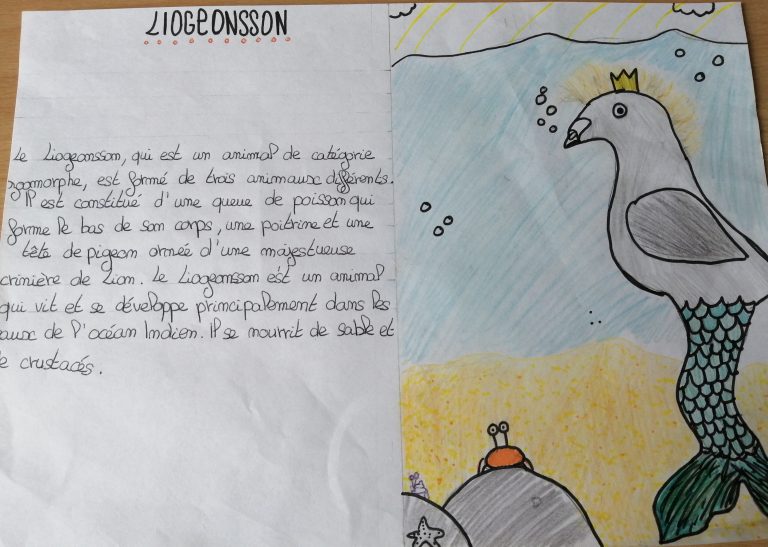 LIOGEONSSON
Le Liogeonsson, qui est un animal de catégorie
zoomorphe, est formé de trois animaux différents.
Il est constitué d'une queue de poisson qui
forme le bas de son corps, une poitrine et une
tête de pigeon ornée d'une majestueuse
crinière de Lion. Le Liogeonsson est un animal
qui vit et se développe principalement dans les
eaux de l'océan Indien. Il se nourrit de sable et
de crustacés.